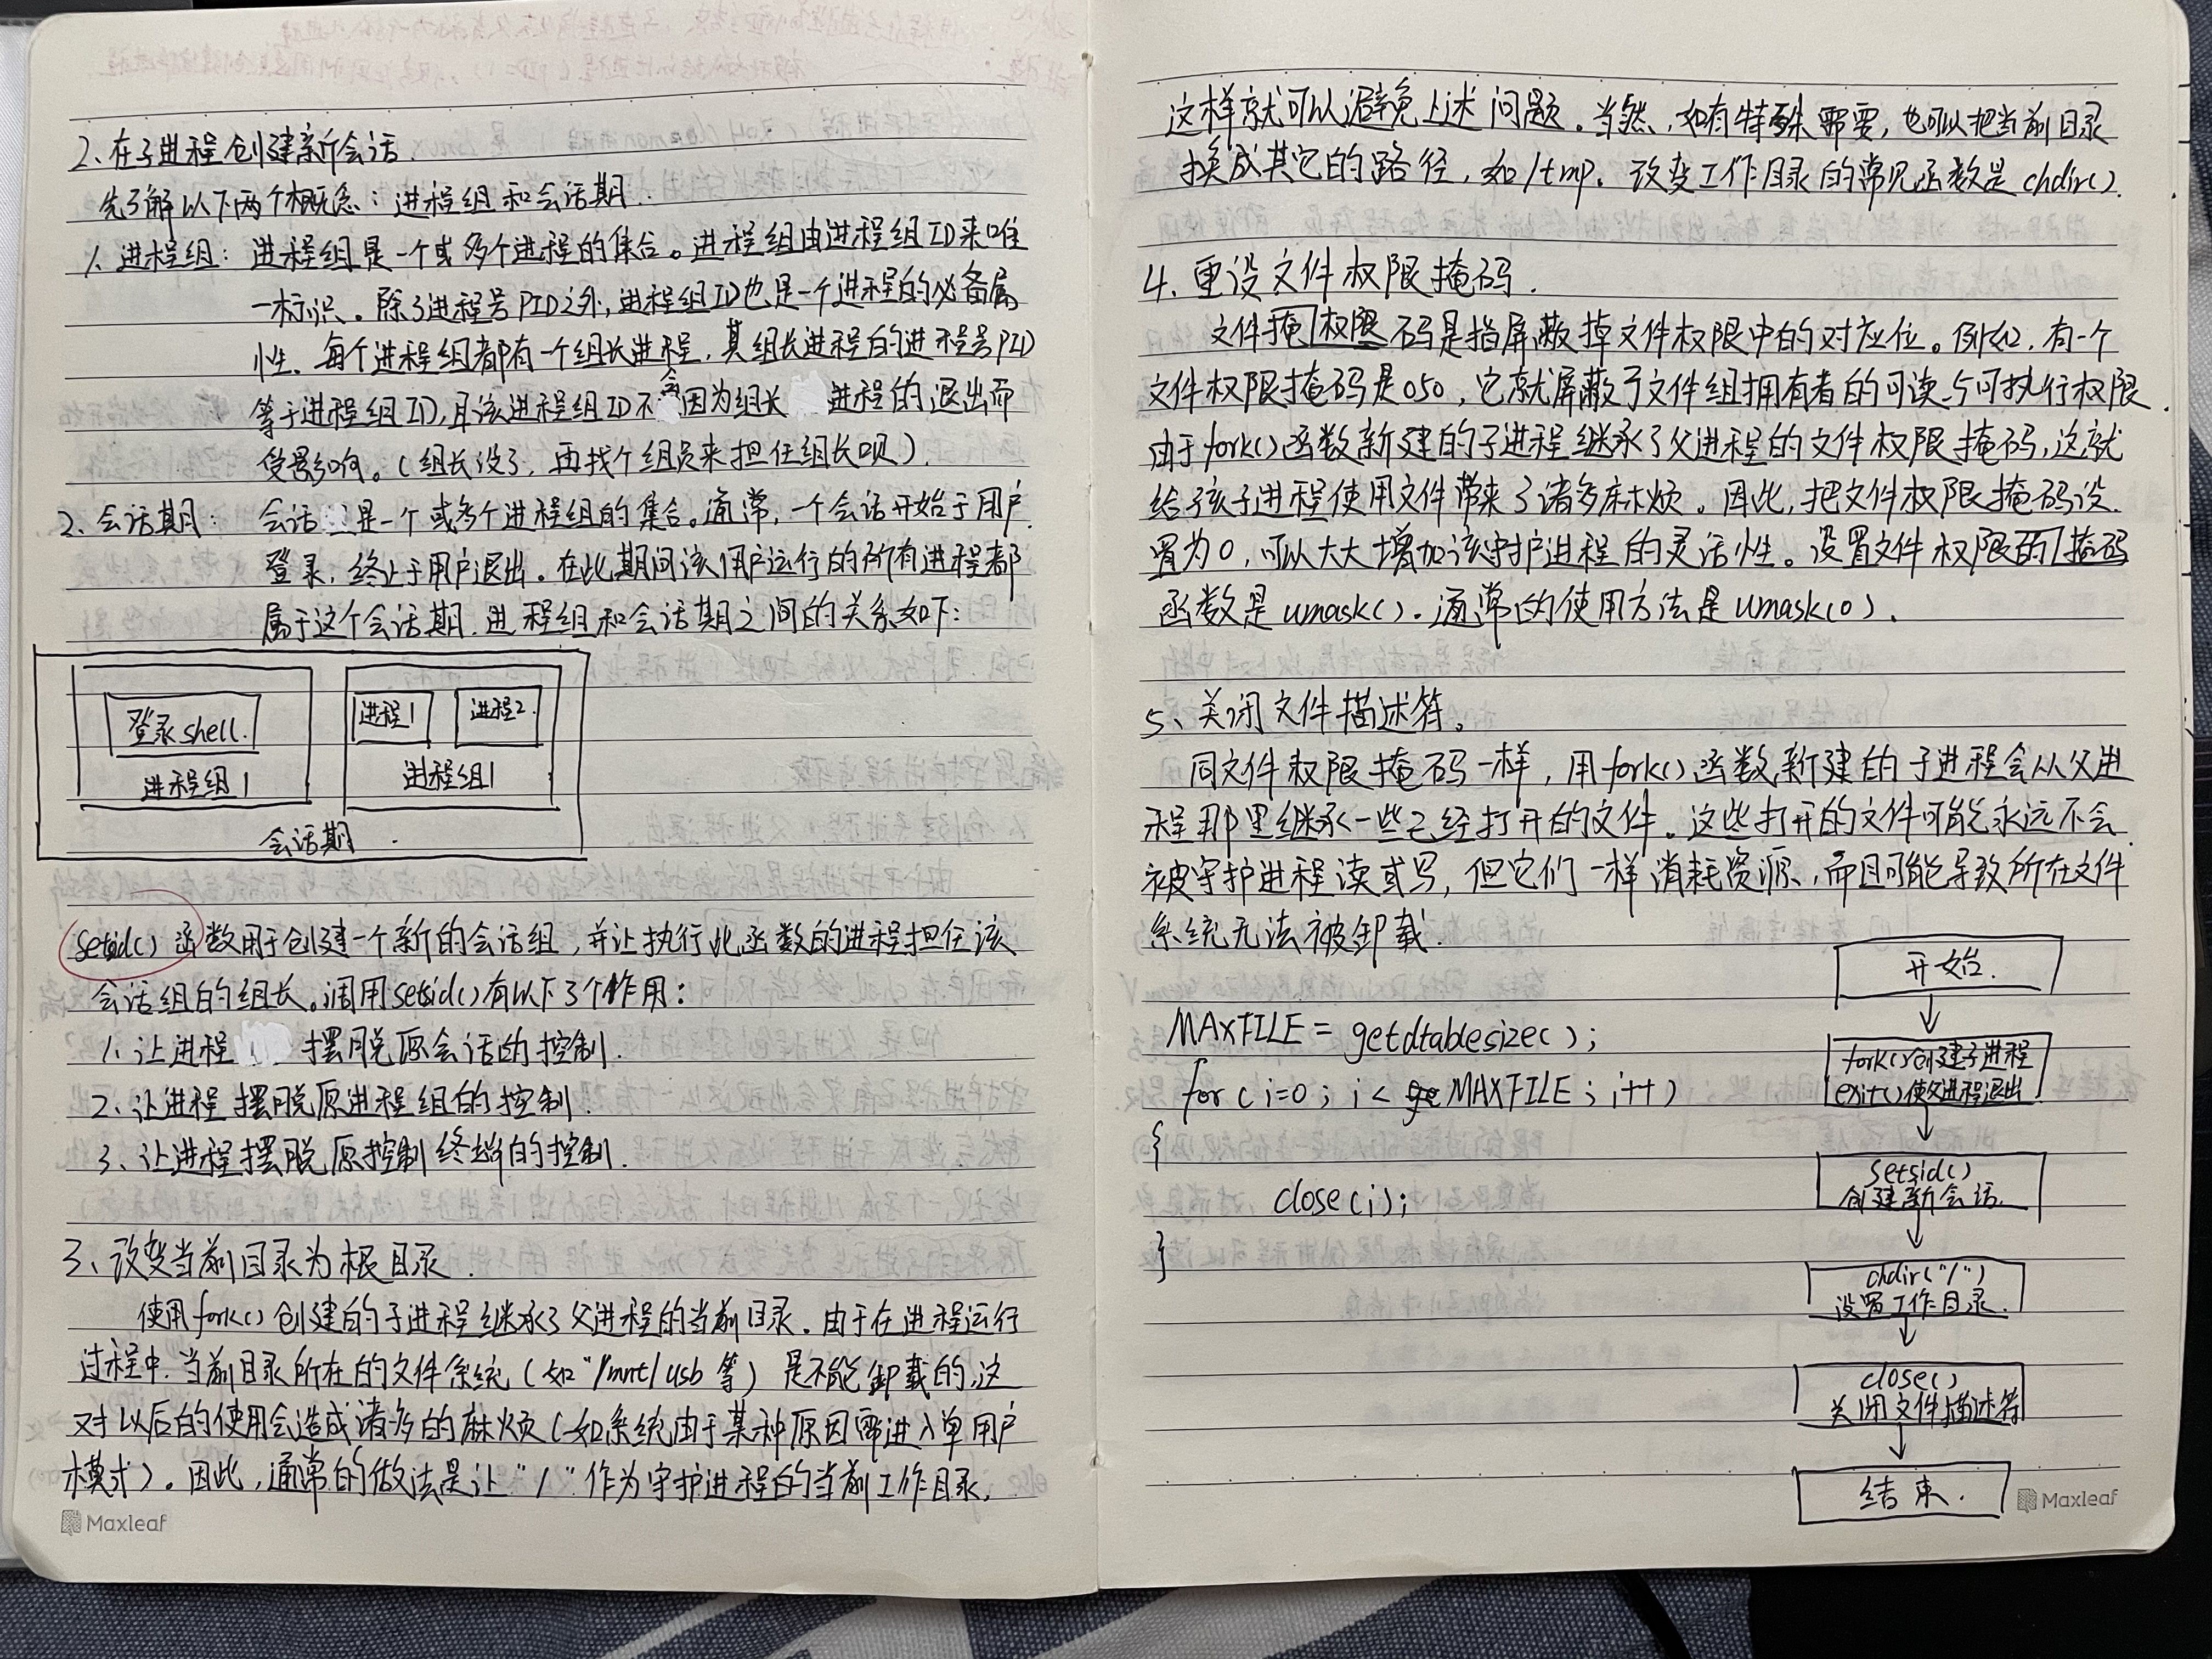 2、在子进程创建新会话.
先了解以下两个概念:进程组和会话期.
1. 进程组: 进程组是一个或多个进程的集合。进程组由进程组ID来唯
一标识。除了进程号PID之外,进程组ID也是一个进程的必备属
性. 每个进程组都有一个组长进程,其组长进程的进程号PID
等于进程组ID,且该进程组ID不会因为组长 进程的退出而
受影响。(组长没了,再找个组员来担任组长呗).
2. 会话期: 会话 是一个或多个进程组的集合。通常,一个会话开始于用户
登录,终止于用户退出。在此期间该用户运行的所有进程都
属于这个会话期.进程组和会话期之间的关系如下:
登录shell.
进程组1
进程1
进程2.
进程组1
会话期
setsid()函数用于创建一个新的会话组,并让执行此函数的进程担任该
会话组的组长。调用setsid()有以下3个作用:
1. 让进程 摆脱原会话的控制.
2、让进程摆脱原进程组的控制.
3、让进程摆脱原控制终端的控制.
3、改变当前目录为根目录.
使用fork()创建的子进程继承了父进程的当前目录.由于在进程运行
过程中.当前目录所在的文件系统(如"/mnt/usb等)是不能卸载的,这
对以后的使用会造成诸多的麻烦(如系统由于某种原因需进入单用户
模式)。因此,通常的做法是让"/"作为守护进程的当前工作目录,
Maxleaf
这样就可以避免上述问题。当然,如有特殊需要,也可以把当前目录
换成其它的路径,如/tmp. 改变工作目录的常见函数是chdir().
4. 重设文件权限掩码.
文件掩权限码是指屏蔽掉文件权限中的对应位。例如,有一个
文件权限掩码是050,它就屏蔽了文件组拥有者的可读与可执行权限.
由于fork()函数新建的子进程继承了父进程的文件权限掩码,这就
给孩子进程使用文件带来了诸多麻烦。因此,把文件权限掩码设
置为0,可以大大增加该守护进程的灵活性。设置文件权限的掩码
函数是umask().通常的使用方法是umask(0).
5、关闭文件描述符。
同文件权限掩码一样,用fork()函数新建的子进程会从父进
程那里继承一些已经打开的文件。这些打开的文件可能永远不会
被守护进程读或写,但它们一样消耗资源,而且可能导致所在文件
系统无法被卸载.
MAXFILE = getdtablesize();
for (i=0; i< MAXFILE; i++)
{
close(i);
}
开始.
fork()创建子进程
exit()使父进程退出
setsid()
创建新会话.
chdir("/")
设置工作目录.
close()
关闭文件描述符
结束.
Maxleaf